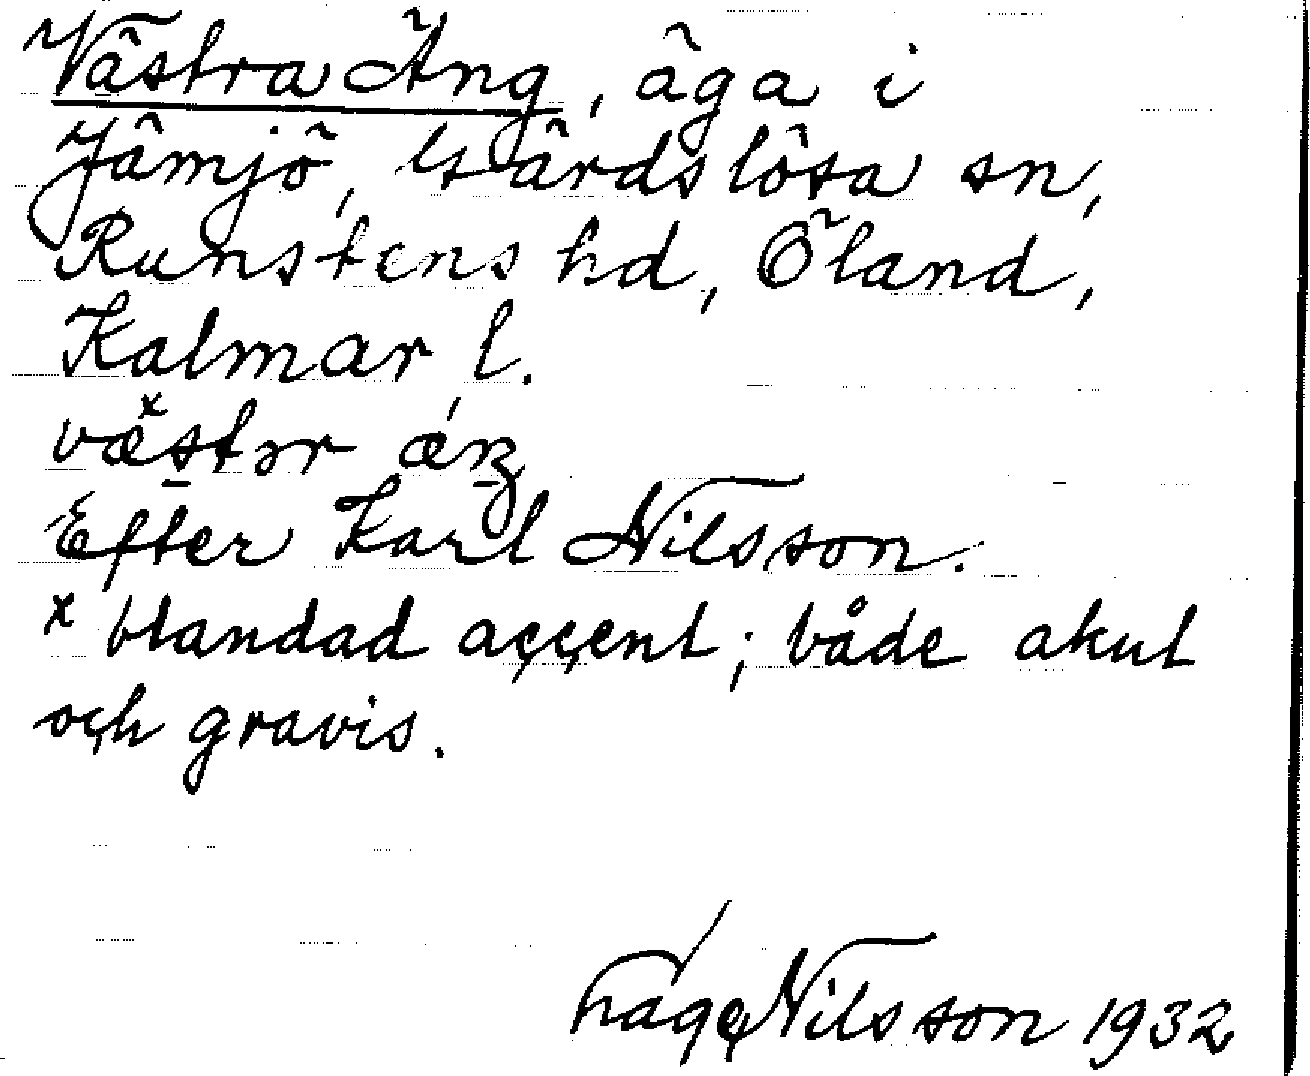 Västra Äng, äga i
Jämjö, Gärdslösa sn,
Runstens hd, Öland,
Kalmar l.
væ̌stər ǽŋ
Efter Karl Nilsson.
x blandad accent; både akut
och gravis.
Tage Nilsson 1932